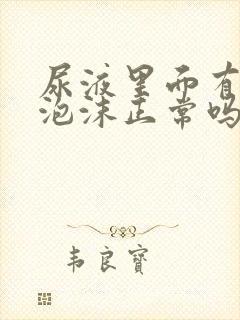 尿液里面有
泡沫正常吗
韦良寶